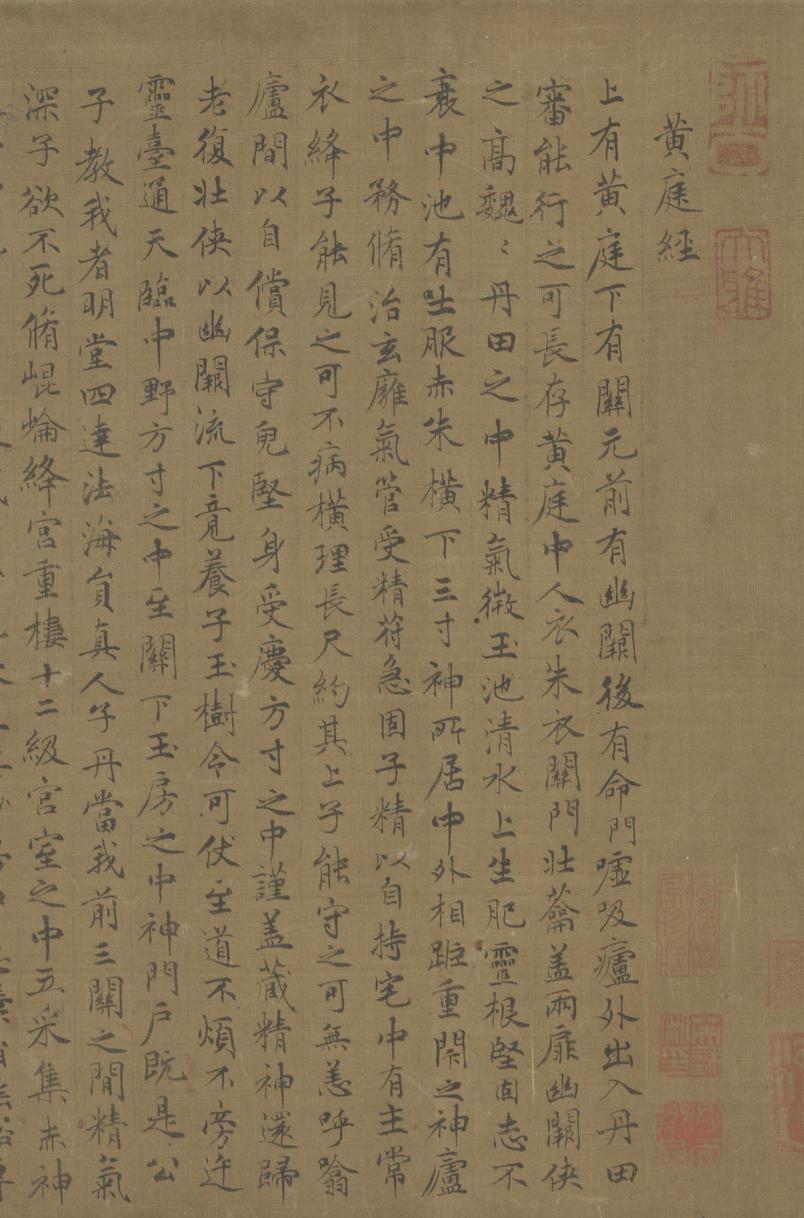 黃庭經
上有黃庭下有關元前有幽闕後有命門噓吸廬外出入丹田
審能行之可長存黃庭中人衣朱衣關門壯蘥蓋兩扉幽闕俠
之高魏〻丹田之中精氣微玉池清水上生肥靈根堅固志不
衰中池有士服赤朱橫下三寸神所居中外相距重閇之神廬
之中務脩治玄廱氣管受精苻急固子精以自持宅中有主常
衣絳子能見之可不病橫理長尺約其上子能守之可無恙呼噏
廬間以自償保守皃堅身受慶方寸之中謹蓋藏精神還歸
老復壯俠以幽闕流下竟養子玉樹令可伏至道不煩不旁迕
靈臺通天臨中野方寸之中至關下玉房之中神門戶既是公
子教我者明堂四達法海員真人子丹當我前三關之間精氣
深子欲不死脩崐崘絳宮重樓十二級宮室之中五采集赤神